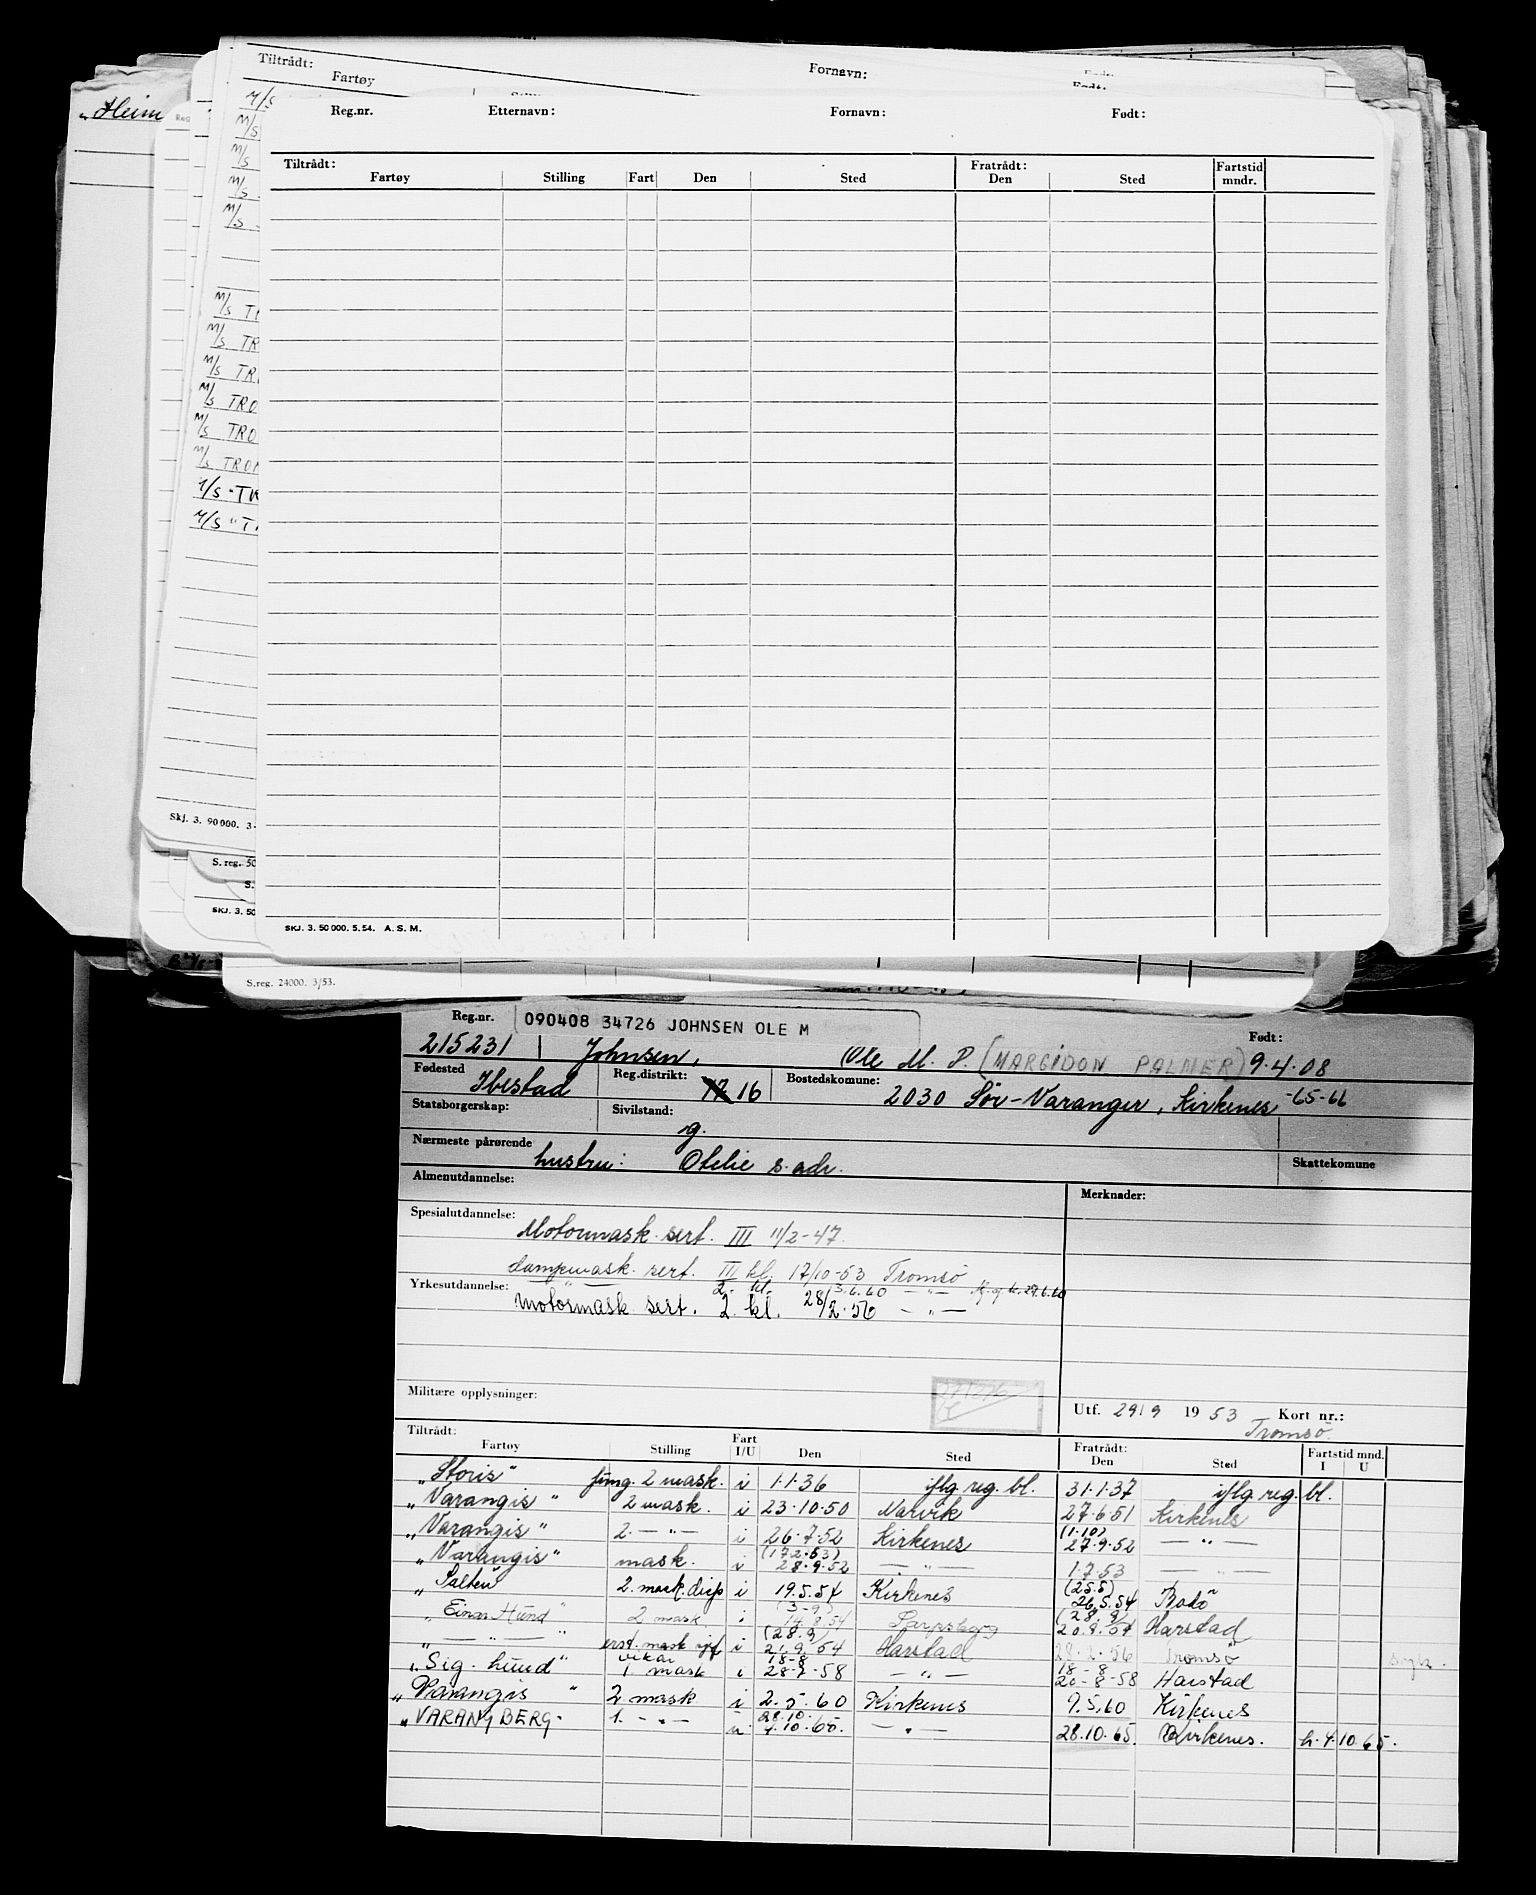 Tiltrådt: Fornavn:
Fartøy
„Heim
M/S
M/S
M/S
M/S
M/S
M/S
M/S TR
M/S TR
M/S TRO
M/S TRO
M/S TROM
M/S
Skj. 3. 90000. 3-
S. reg. 50
S.
SKJ. 3. 50
Reg.nr. Etternavn: Fornavn: Født:
Tiltrådt: Fratrådt: Fartstid
Fartøy Stilling Fart Den Sted Den Sted mndr.
SKJ. 3. 50 000. 5. 54. A. S. M.
S.reg. 24000. 3/53.
Reg.nr. 090408 34726 JOHNSEN OLE M Født:
215231 Johnsen, Ole M. P. (MARGIDON PALMER) 9.4.08
Fødested Ibestad Reg.distrikt: 16 Bostedskomune: 2030 Sör-Varanger, Kirkenes -65-66
Statsborgerskap: Sivilstand: g.
Nærmeste pårørende hustru: Otelie s. adr. Skattekomune
Almenutdannelse: Merknader:
Spesialutdannelse: Motormask. sert. III 11/2-47.
dampmask. sert. III kl. 17/10-53 Tromsö
Yrkesutdannelse: — " — 2. kl. 3.6.60 — " —
motormask sert. 2. kl. 28/2.56 — " —
Militære opplysninger:
Utf. 29/9 1953 Kort nr.:
Tromsö
Tiltrådt: Fart Fratrådt: Fartstid mnd.
Fartøy Stilling I/U Den Sted Den Sted I U
„Storis" fung. 2 mask. i 1.1.36 iflg. reg. bl. 31.1.37 iflg. reg. bl.
„Varangis" 2 mask. i 23.10.50 Narvik 27.6.51 Kirkenes
„Varangis" 2. — " — i 26.7.52 Kirkenes (1.10) 27.9.52 — " —
„Varangis" mask. i (17.2.53) 28.9.52 — " — 1.7.53 — " —
„Salten 2. mask. disp i 19.5.54 Kirkenes (25.5) 26.5.54 Bodö
„Einar Hund" 2 mask i (3-9) 14.8.54 Sarpsborg (28.9) 20.9.54 Harstad
„ — " — " i (28.9) 21.9.54 Harstad 28.2.56 Tromsö
„Sig. hund" vikar 1. mask i 18-8 28-7-58 — " — 18-8 20-8-58 Harstad
„Varangis " 2 mask i 2.5.60 Kirkenes 9.5.60 Kirkenes
„VARANGBERG" 1. — " — u 28.10. 4.10.65. — " — 28.10.65. Kirkenes. h. 4.10.65.